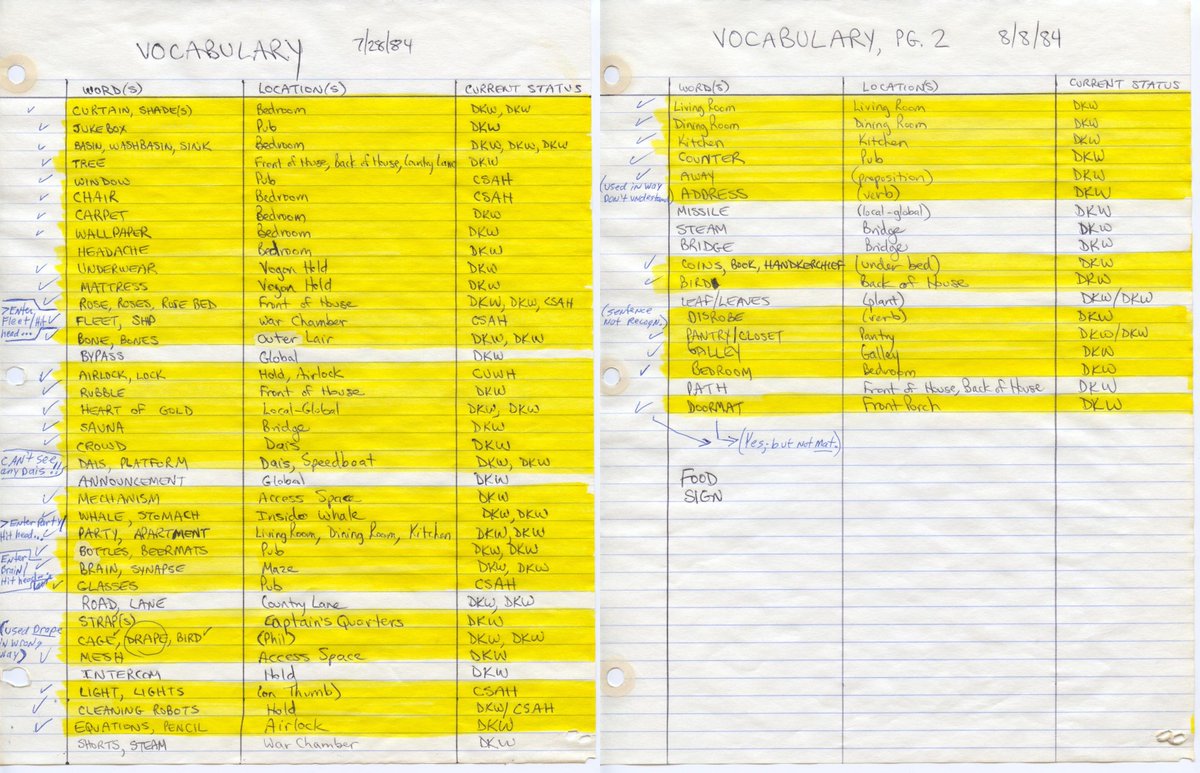 VOCABULARY 7/28/84
WORD(S) LOCATION(S) CURRENT STATUS
CURTAIN, SHADE(S) Bedroom DKW, DKW
JUKEBOX Pub DKW
BASIN, WASHBASIN, SINK Bedroom DKW, DKW, DKW
TREE Front of House, Back of House, Country Lane DKW
WINDOW Pub CSAH
CHAIR Bedroom CSAH
CARPET Bedroom DKW
WALLPAPER Bedroom DKW
HEADACHE Bedroom DKW
UNDERWEAR Vogon Hold DKW
MATTRESS Vogon Hold DKW
ROSE, ROSES, ROSE BED Front of House DKW, DKW, CSAH
>Enter
Fleet/Hit
head...
FLEET, SHIP War Chamber CSAH
BONE, BONES Outer Lair DKW, DKW
BYPASS Global DKW
AIRLOCK, LOCK Hold, Airlock CUWH
RUBBLE Front of House DKW
HEART OF GOLD Local-Global DKW, DKW
SAUNA Bridge DKW
CROWD Dais DKW
CAN'T see
any Dais!!
DAIS, PLATFORM Dais, Speedboat DKW, DKW
ANNOUNCEMENT Global DKW
MECHANISM Access Space DKW
WHALE, STOMACH Inside Whale DKW, DKW
>Enter Party/
Hit head...
PARTY, APARTMENT Living Room, Dining Room, Kitchen DKW, DKW
BOTTLES, BEERMATS Pub DKW, DKW
Enter
Brain/
Hit head
BRAIN, SYNAPSE Maze DKW, DKW
GLASSES Pub CSAH
ROAD, LANE Country Lane DKW, DKW
STRAP(S) Captain's Quarters DKW
(used Drape
in wrong
way)
CAGE, DRAPE, BIRD (Phil) DKW, DKW
MESH Access Space DKW
INTERCOM Hold DKW
LIGHT, LIGHTS (on Thumb) CSAH
CLEANING ROBOTS Hold DKW/CSAH
EQUATIONS, PENCIL Airlock DKW
SHORTS, STEAM War Chamber DKW
VOCABULARY, PG. 2 8/8/84
WORD(S) LOCATION(S) CURRENT STATUS
Living Room Living Room DKW
Dining Room Dining Room DKW
Kitchen Kitchen DKW
COUNTER Pub DKW
AWAY (preposition) DKW
(used in way
Don't understand)
ADDRESS (verb) DKW
MISSILE (local-global) DKW
STEAM Bridge DKW
BRIDGE Bridge DKW
COINS, BOOK, HANDKERCHIEF (under bed) DKW
BIRD Back of House DKW
LEAF/LEAVES (plant) DKW/DKW
(sentence
Not Recogn.)
DISROBE (verb) DKW
PANTRY/CLOSET Pantry DKW/DKW
GALLEY Galley DKW
BEDROOM Bedroom DKW
PATH Front of House, Back of House DKW
DOORMAT Front Porch DKW
(Yes, but not mat.)
FOOD
SIGN